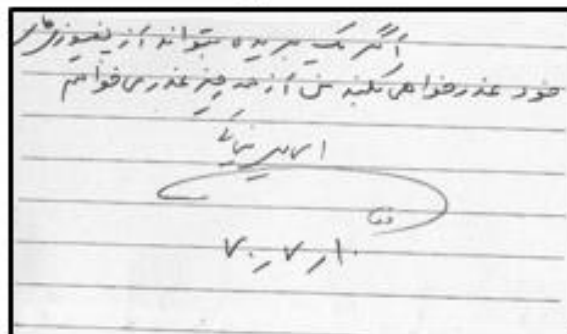 اگر یک بریده بتواند از پفیوزی های
خود عذرخواهی بکند من از همه چیز عذر می خواهم
۱۰ر۷ر۷۰